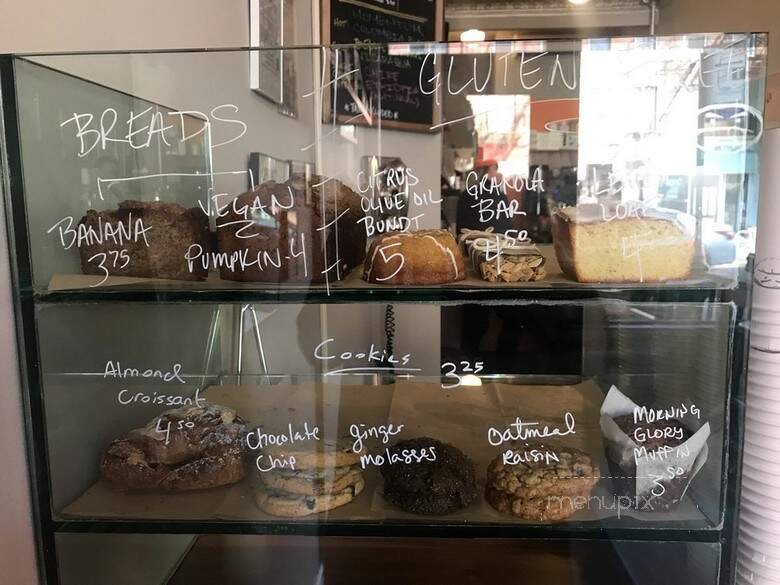 BREADS
GLUTEN
BANANA
3 75
VEGAN
PUMPKIN-4
CITRUS
OLIVE OIL
BUNDT
5
GRANOLA
BAR
4 50
LOAF
4
Almond
Croissant
4 50
Cookies 3 25
Chocolate
Chip
ginger
molasses
Oatmeal
RAISIN
MORNING
GLORY
MUFFIN
3 50
menupix